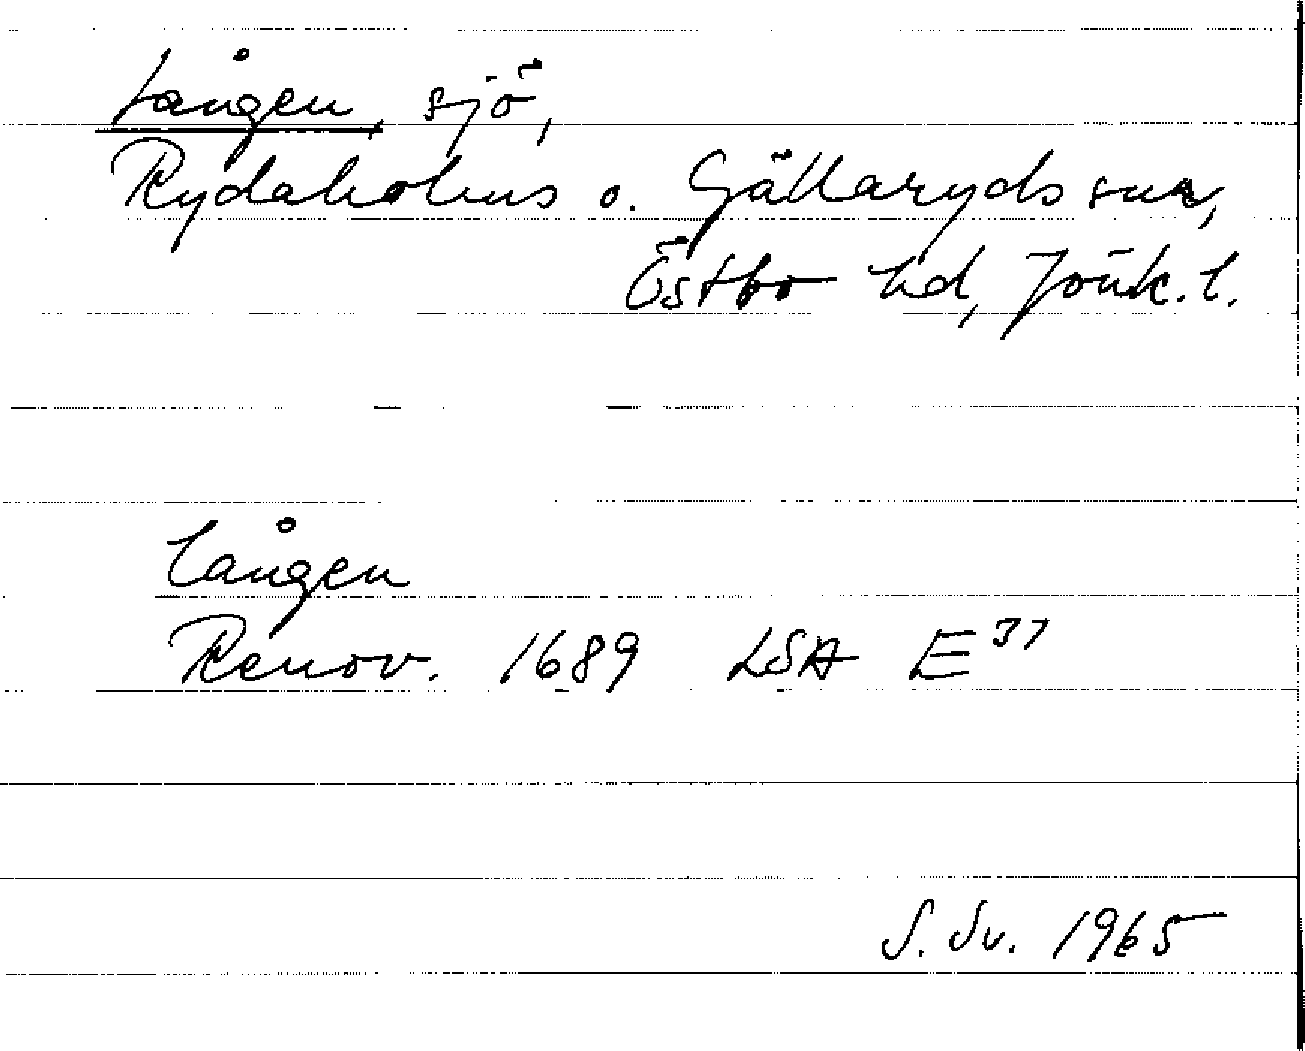 Lången, sjö,
Rydaholms o. Gällaryds snr,
Östbo hd, Jönk. l.
Lången
Renov. 1689 LSA E 37
S. Sv. 1965